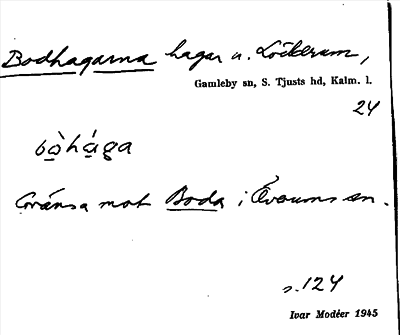 Bodhagarna hagar u. Löckerum,
Gamleby sn, S. Tjusts hd, Kalm. l.
24
bò̱há̱ga
Gränsa mot Boda i Överums sn.
s. 124
Ivar Modéer 1945